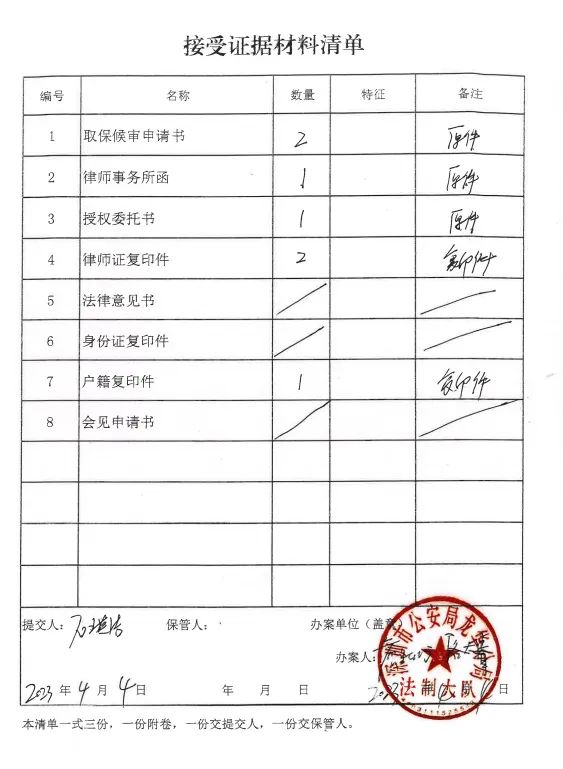 接受证据材料清单
编号 名称 数量 特征 备注
1 取保候审申请书 2 原件
2 律师事务所函 1 原件
3 授权委托书 1 原件
4 律师证复印件 2 复印件
5 法律意见书
6 身份证复印件
7 户籍复印件 1 复印件
8 会见申请书
提交人： 保管人： 办案单位（盖章）
办案人：
市公安局龙 分局
法制大队
2023年4月4日 年 月 日 年 月 日
本清单一式三份，一份附卷，一份交提交人，一份交保管人。